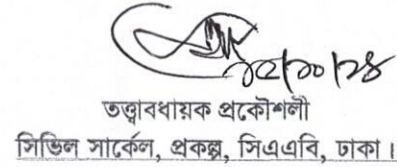 ১৫/১০/২৪
তত্ত্বাবধায়ক প্রকৌশলী
সিভিল সার্কেল, প্রকল্প, সিএএবি, ঢাকা।